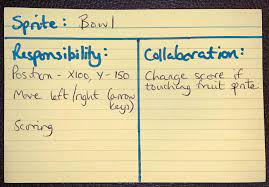 Sprite: Bowl
Responsibility:
Position - X100, Y-150
Move left/right (arrow keys)
Scoring
Collaboration:
Change score if
touching fruit sprite.